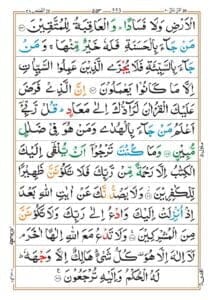 الْاَرْضِ وَلَا فَسَادًا ؕ وَالْعَاقِبَةُ لِلْمُتَّقِيْنَ
مَنْ جَآءَ بِالْحَسَنَةِ فَلَهٗ خَيْرٌ مِّنْهَا ۚ وَمَنْ
جَآءَ بِالسَّيِّئَةِ فَلَا يُجْزَى الَّذِيْنَ عَمِلُوا السَّيِّاٰتِ
اِلَّا مَا كَانُوْا يَعْمَلُوْنَ اِنَّ الَّذِيْ فَرَضَ
عَلَيْكَ الْقُرْاٰنَ لَرَآدُّكَ اِلٰى مَعَادٍ ؕ قُلْ رَّبِّيْٓ
اَعْلَمُ مَنْ جَآءَ بِالْهُدٰى وَمَنْ هُوَ فِيْ ضَلٰلٍ
مُّبِيْنٍ وَمَا كُنْتَ تَرْجُوْٓا اَنْ يُّلْقٰٓى اِلَيْكَ
الْكِتٰبُ اِلَّا رَحْمَةً مِّنْ رَّبِّكَ فَلَا تَكُوْنَنَّ ظَهِيْرًا
لِّلْكٰفِرِيْنَ وَلَا يَصُدُّنَّكَ عَنْ اٰيٰتِ اللّٰهِ بَعْدَ
اِذْ اُنْزِلَتْ اِلَيْكَ وَادْعُ اِلٰى رَبِّكَ وَلَا تَكُوْنَنَّ
مِنَ الْمُشْرِكِيْنَ وَلَا تَدْعُ مَعَ اللّٰهِ اِلٰهًا اٰخَرَ
لَآ اِلٰهَ اِلَّا هُوَ كُلُّ شَيْءٍ هَالِكٌ اِلَّا وَجْهَهٗ
لَهُ الْحُكْمُ وَاِلَيْهِ تُرْجَعُوْنَ